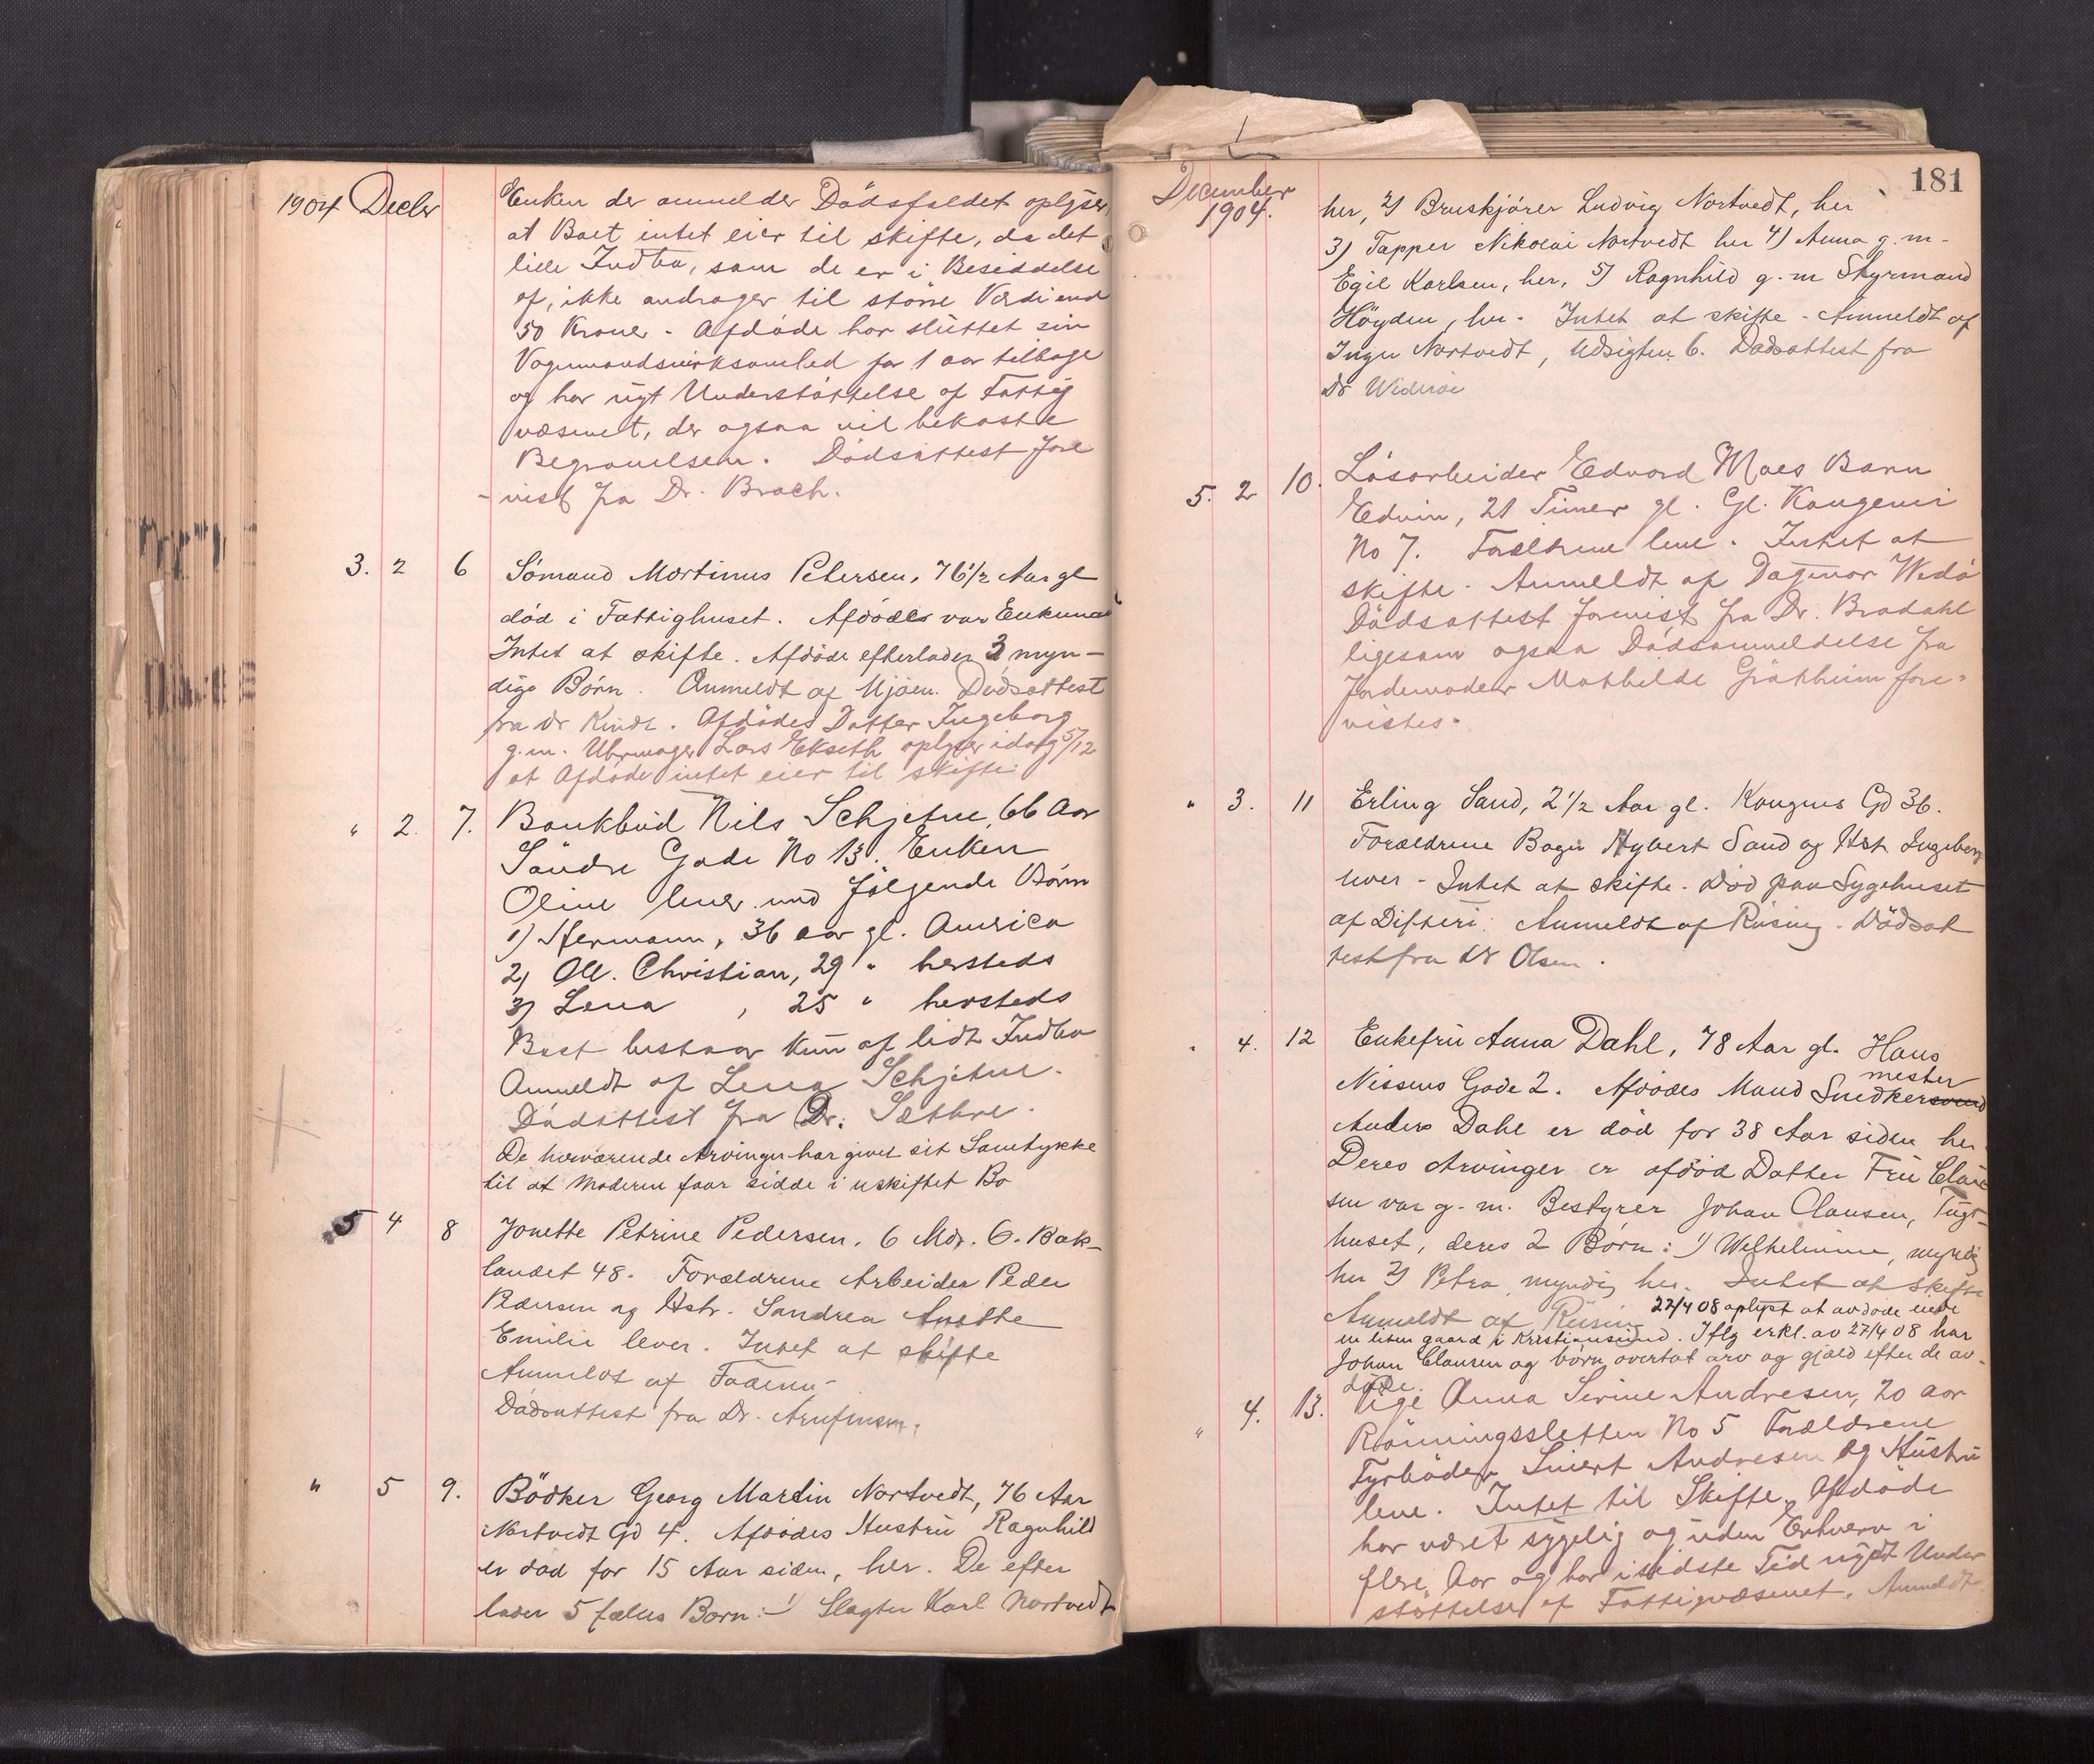 1904 Decbr
Enken der anmelder Dödsfaldet oplyser,
at Boet intet eier til skifte, da det
lille Indbo, som de er i Besiddelse
af, ikke andrager til större Værdi end
50 Kroner. Afdöde har sluttet sin
Vognmandsvirksomhed for 1 aar tilbage
og har nyt Understöttelse af Fattig
væsenet, der ogsaa vil bekoste
Begravelsen. Dödsattest fore
-vist fra Dr. Brach.
3. 2 6 Sömand Mortinus Petersen, 76 1/2 Aar gl
död i Fattighuset. Afdöde var Enkemand
Intet at skifte. Afdöde efterlader 3 myn-
dige Börn. Anmeldt af Mjöen. Dödsattest
fra Dr Kindt. Afdödes Datter Ingeborg
g.m. Uhrmager Lars Ekseth oplyser idag 5/12
at Afdöde intet eier til skifte.
" 2. 7. Bankbud Nils Schjetne, 66 Aar
Söndre Gade No 13. Enken
Oline lever med fölgende Börn
1) Hermann, 36 aar gl. America
2) Ole Christian, 29 " hersteds
3) Lena , 25 " hersteds
Boet bestaar kun af lidt Indbo
Anmeldt af Lena Schjetne.
Dödsattest fra Dr. Sæthre.
De herværende Arvinger har givet sit Samtykke
til at Moderen faar sidde i uskiftet Bo
5 4 8 Jonette Petrine Pedersen. 6 Mdr. O. Bak-
landet 48. Forældrene Arbeider Peder
Pedersen og Hstr. Sandrea Anette
Emilie lever. Intet at skifte
Anmeldt af Faderen
Dödsattest fra Dr. Arnfinsen.
" 5 9. Bödker Georg Martin Nortvedt, 76 Aar
Nortvedt Gd 4. Afdödes Hustru Ragnhild
er död for 15 Aar siden, her. De efter
lader 5 fælles Börn: 1) Slagter Karl Nortvedt
181
December
1904.
her, 2) Bruskjörer Ludvig Nortvedt, her
3) Tapper Nikolai Nortvedt her 4) Anna g. m-
Egil Karlsen, her, 5) Ragnhild g. m Styrmand
Höyden, her. Intet at skifte - Anmeldt af
Inger Nortvedt, Udsigten 6. Dödsattest fra
Dr Wideröe
5. 2 10. Lösarbeider Edvard Moes Barn
Edvin, 21 Timer gl. Gl. Kongevei
No 7. Forældrene leve. Intet at
skifte. Anmeldt af Dagmar Wedö
Dödsattest forevist fra Dr. Bradahl
ligesom ogsaa Dödsanmeldelse fra
Jordemoder Mathilde Grötheim fore-
vistes.
" 3. 11 Erling Sand, 2 1/2 Aar gl. Kongens Gd 36.
Forældrene Bager Nybert Sand og Hstr Ingeborg
lever - Intet at skifte. Död paa Sygehuset
af Difteri. Anmeldt af Rising. Dödsat
test fra Dr Olsen.
" 4. 12 Enkefru Anna Dahl, 78 Aar gl. Hans
Nissens Gade 2. Afdödes Mand Snedkersvend mester
Anders Dahl er död for 38 Aar siden her.
Deres Arvinger er afdöd Datter Fru Clau
sen var g. m. Bestyrer Johan Clausen, Tugt-
huset, deres 2 Börn: 1) Welhelmine, myndig
her 2) Petra, myndig her. Intet at skifte
Anmeldt af Rising 27/4 08 oplyst at avdöde eiede
en liten gaard i Kristiansund. Iflg erkl. av 27/4 08 har
Johan Clausen og börn overtat arv og gjæld efter de av-
döde.
" 4. 13. Pige Anna Serine Andresen, 20 aar
Rönningsletten No 5 Forældrene
Fyrböder Sivert Andresen og Hustru
leve. Intet til Skifte. Afdöde
har været sygelig og uden Erhverv i
flere Aar og har i sidste Tid nydt Under
stöttelse af Fattigvæsenet. Anmeldt